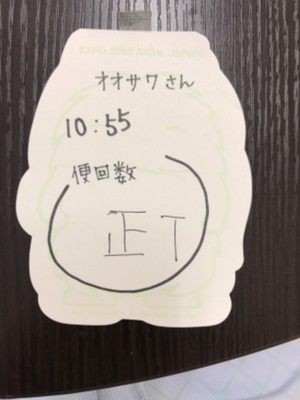 EXPO 2005 AICHI, JAPAN
オオサワさん
10:55
便回数
正丅